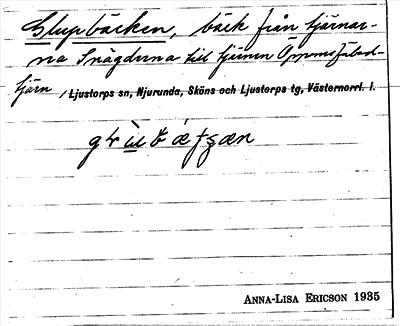 Slupbäcken, bäck från tjärnar-
na Snägdorna till tjärnen
tjärn / Ljustorps sn, Njurunda, Sköns och Ljustorps tg, Västernorrl. l.
ANNA-LISA ERICSON 1935